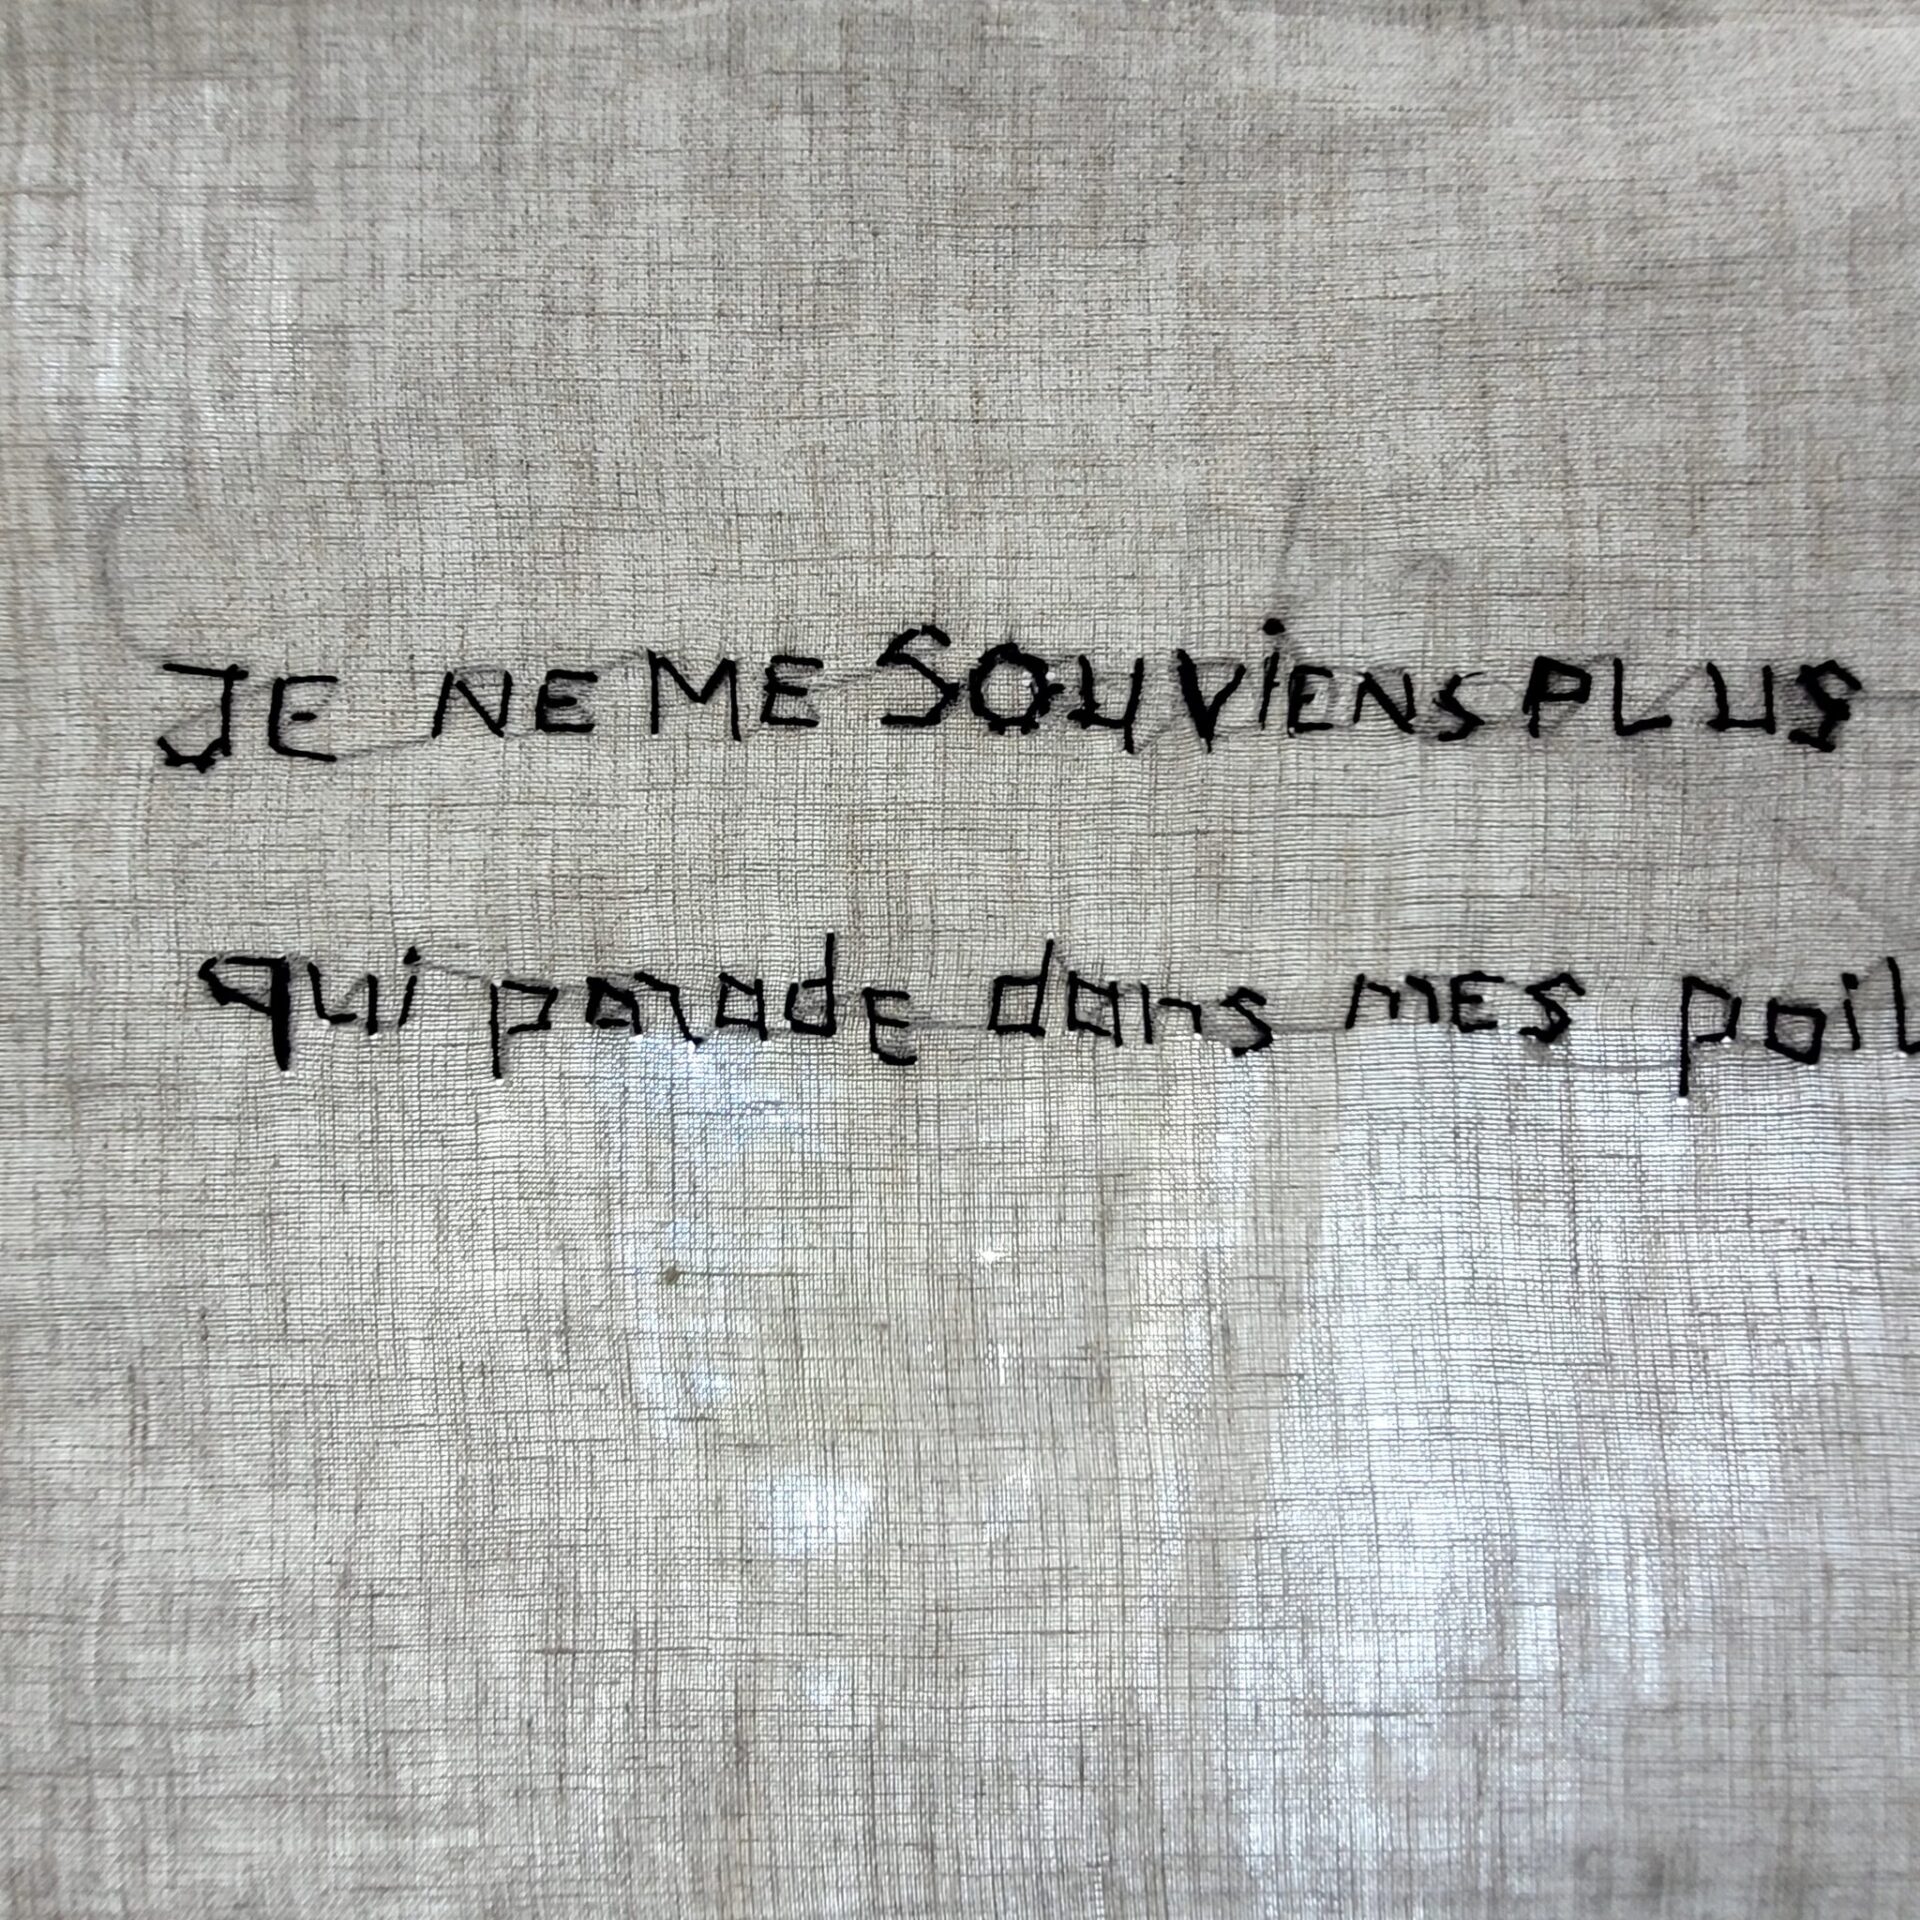 JE NE ME SOUViENS PLUS
qui paradE dans mES poil